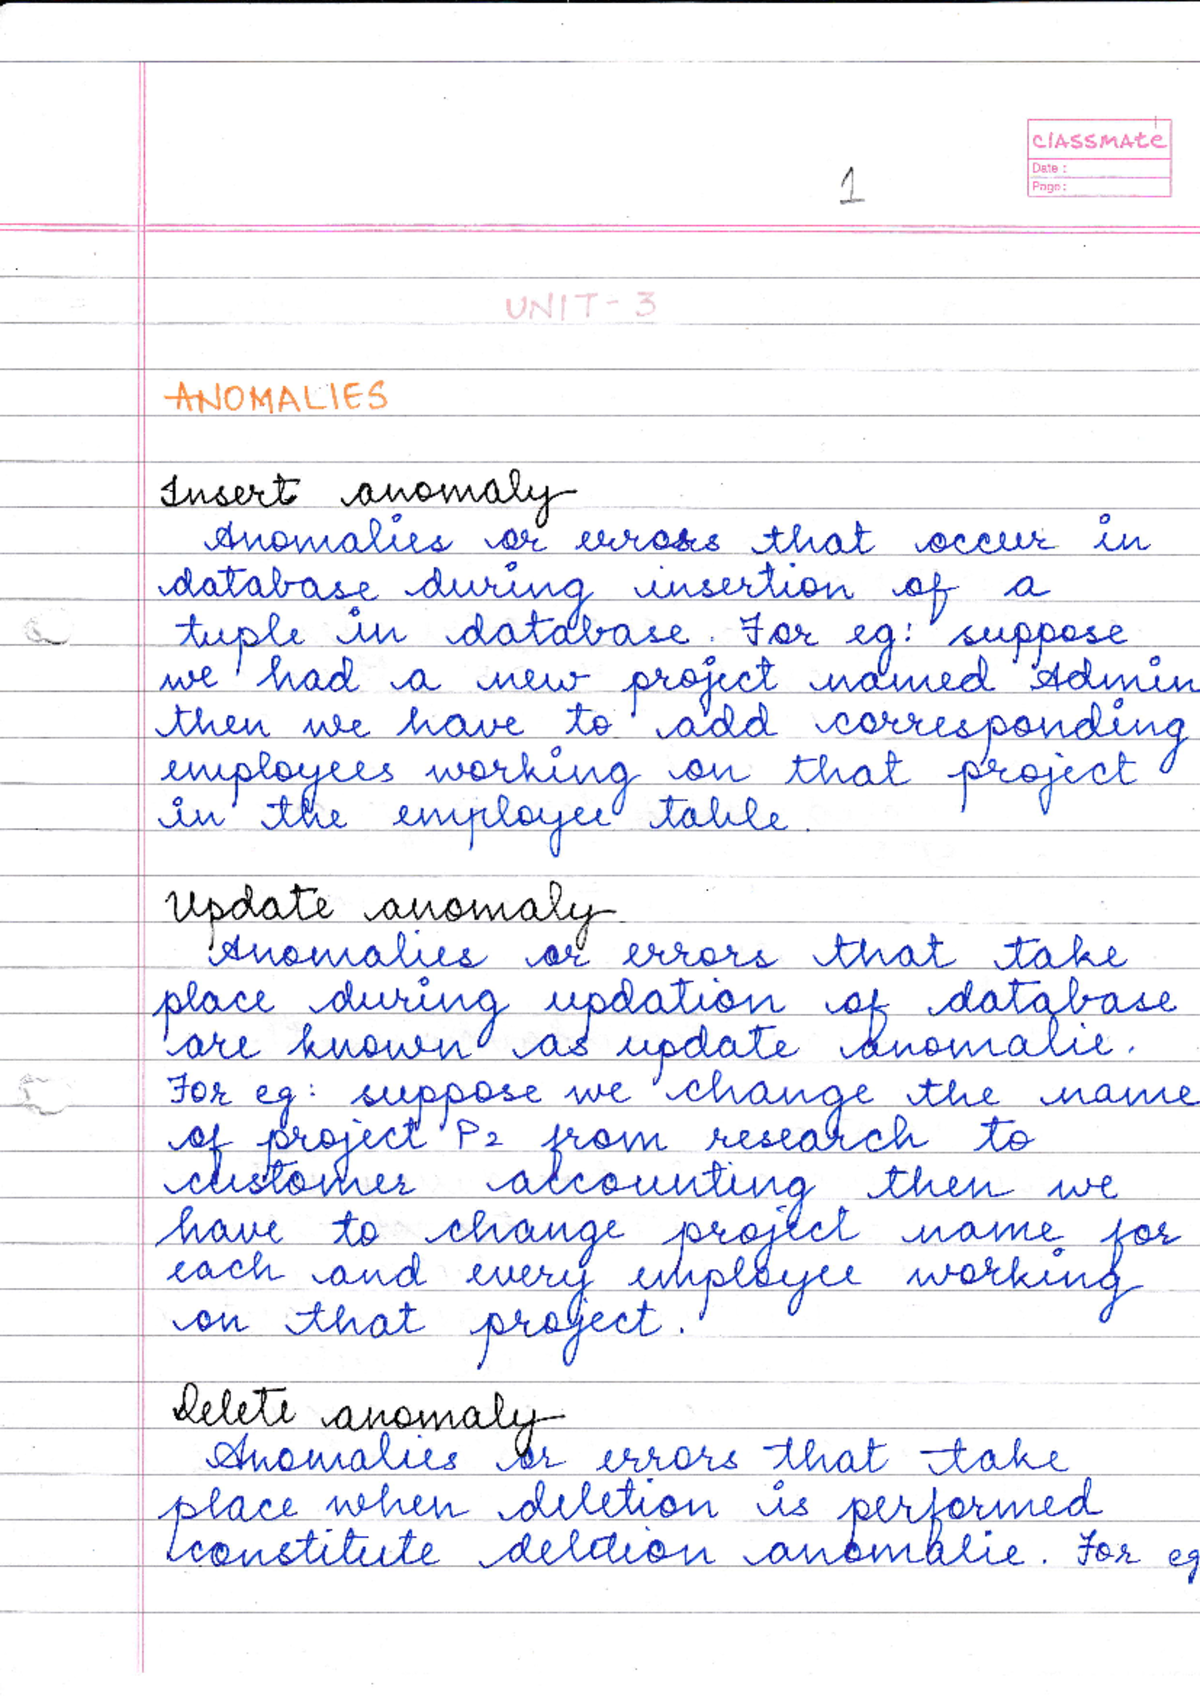 classmate
Date :
Page :
1
UNIT-3
ANOMALIES
Insert anomaly
Anomalies or errors that occur in
database during insertion of a
tuple in database. For eg: suppose
we had a new project named Admin
then we have to add corresponding
employees working on that project
in the employee table.
Update anomaly
Anomalies or errors that take
place during updation of database
are known as update anomalie.
For eg: suppose we change the name
of project P2 from research to
customer accounting then we
have to change project name for
each and every employee working
on that project.
Delete anomaly
Anomalies or errors that take
place when deletion is performed
constitute deletion anomalie. For eg